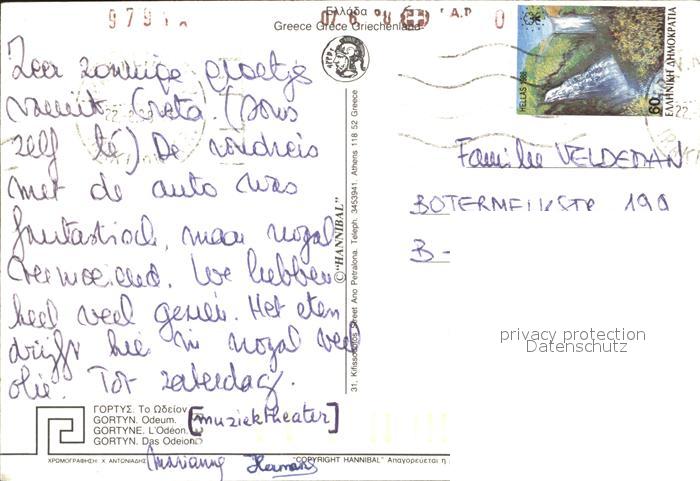 97911
07.6.
A.P
0
Ελλάδα
Greece Grèce Griechenland
HELLAS 1988
60
ΕΛΛΗΝΙΚΗ ΔΗΜΟΚΡΑΤΙΑ
Zeer zonnige groetjes
vanuit Creta. (soms
zelf té) De rondreis
met de auto was
fantastisch, maar nogal
vermoeiend. We hebben
heel veel gezien. Het eten
drijft hier in nogal veel
olie. Tot zaterdag.
[muziektheater]
Marianne Hermans
Familie VELDEMAN
BOTERMELKSTR 190
B-
privacy protection
Datenschutz
©"HANNIBAL"
31, Kifissodotos Street Ano Petralona. Teleph. 3453941. Athens 118 52 Greece
ΓΟΡΤΥΣ. Το Ωδείον
GORTYN. Odeum.
GORTYNE. L'Odéon.
GORTYN. Das Odeion
ΧΡΩΜΟΓΡΑΦΗΣΗ: Χ. ΑΝΤΩΝΙΑΔΗΣ
"COPYRIGHT HANNIBAL" Απαγορεύεται η